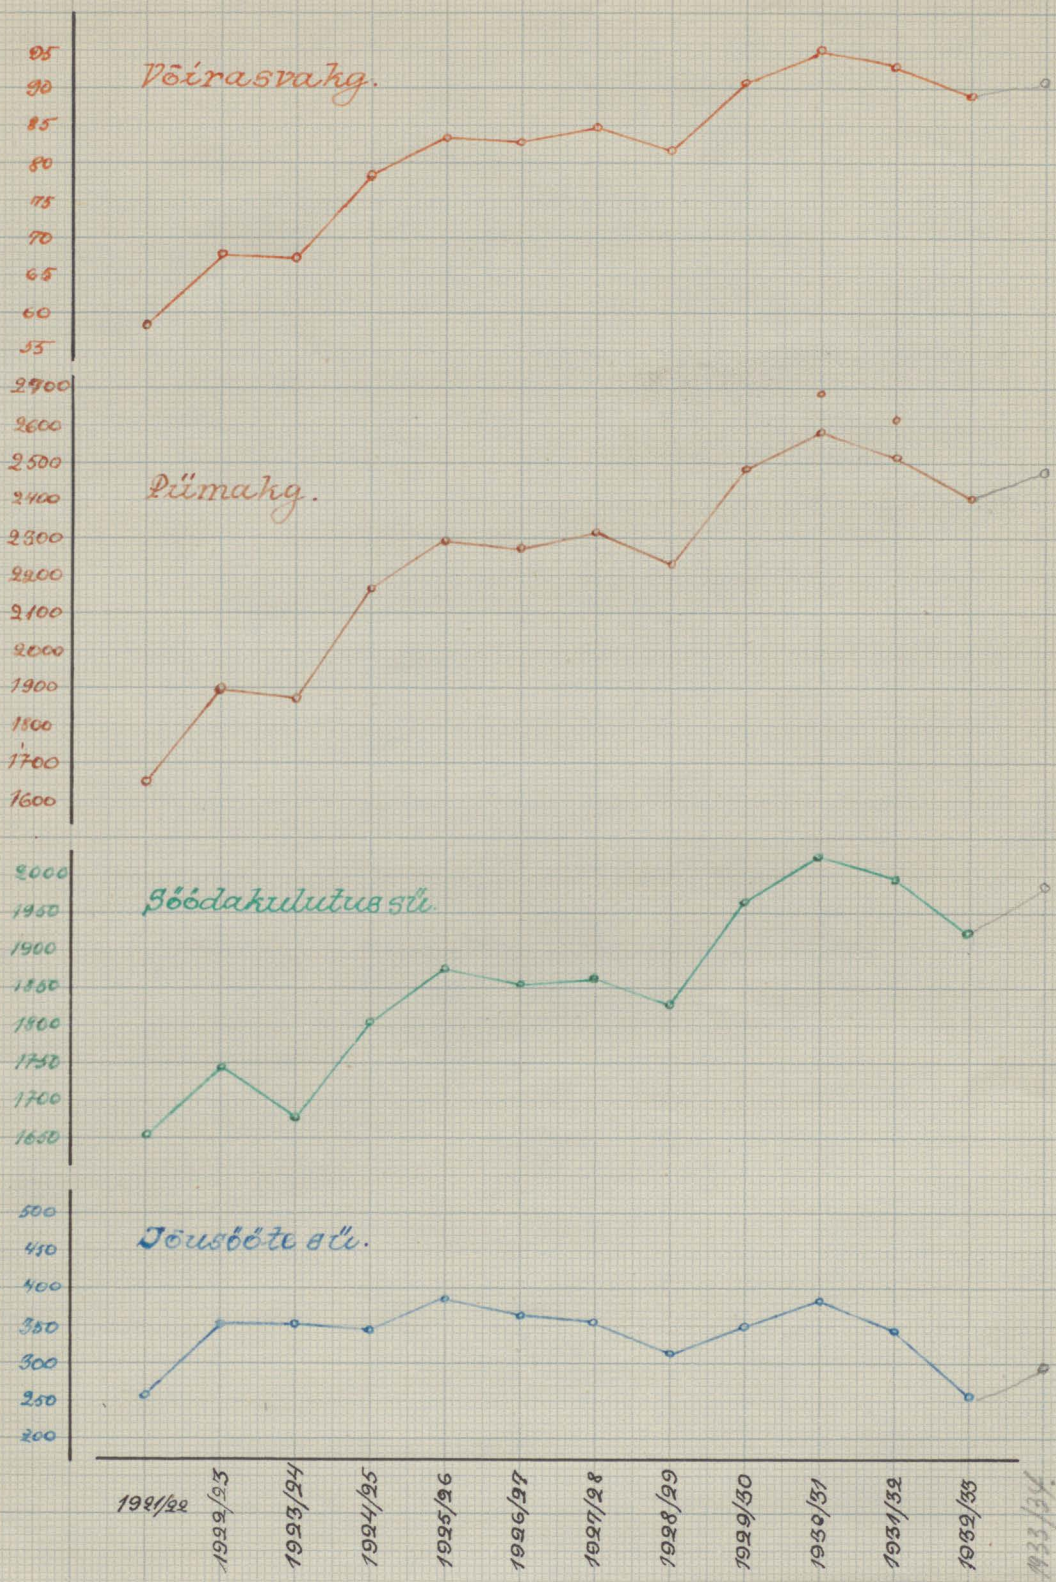 95
90
85
80
75
70
65
60
55
Võirasva kg.
2700
2600
2500
2400
2300
2200
2100
2000
1900
1800
1700
1600
Piima kg.
2000
1950
1900
1850
1800
1750
1700
1650
Söödakulutus sü.
500
450
400
350
300
250
200
Jõusööte sü.
1921/22
1922/23
1923/24
1924/25
1925/26
1926/27
1927/28
1928/29
1929/30
1930/31
1931/32
1932/33
1933/34.